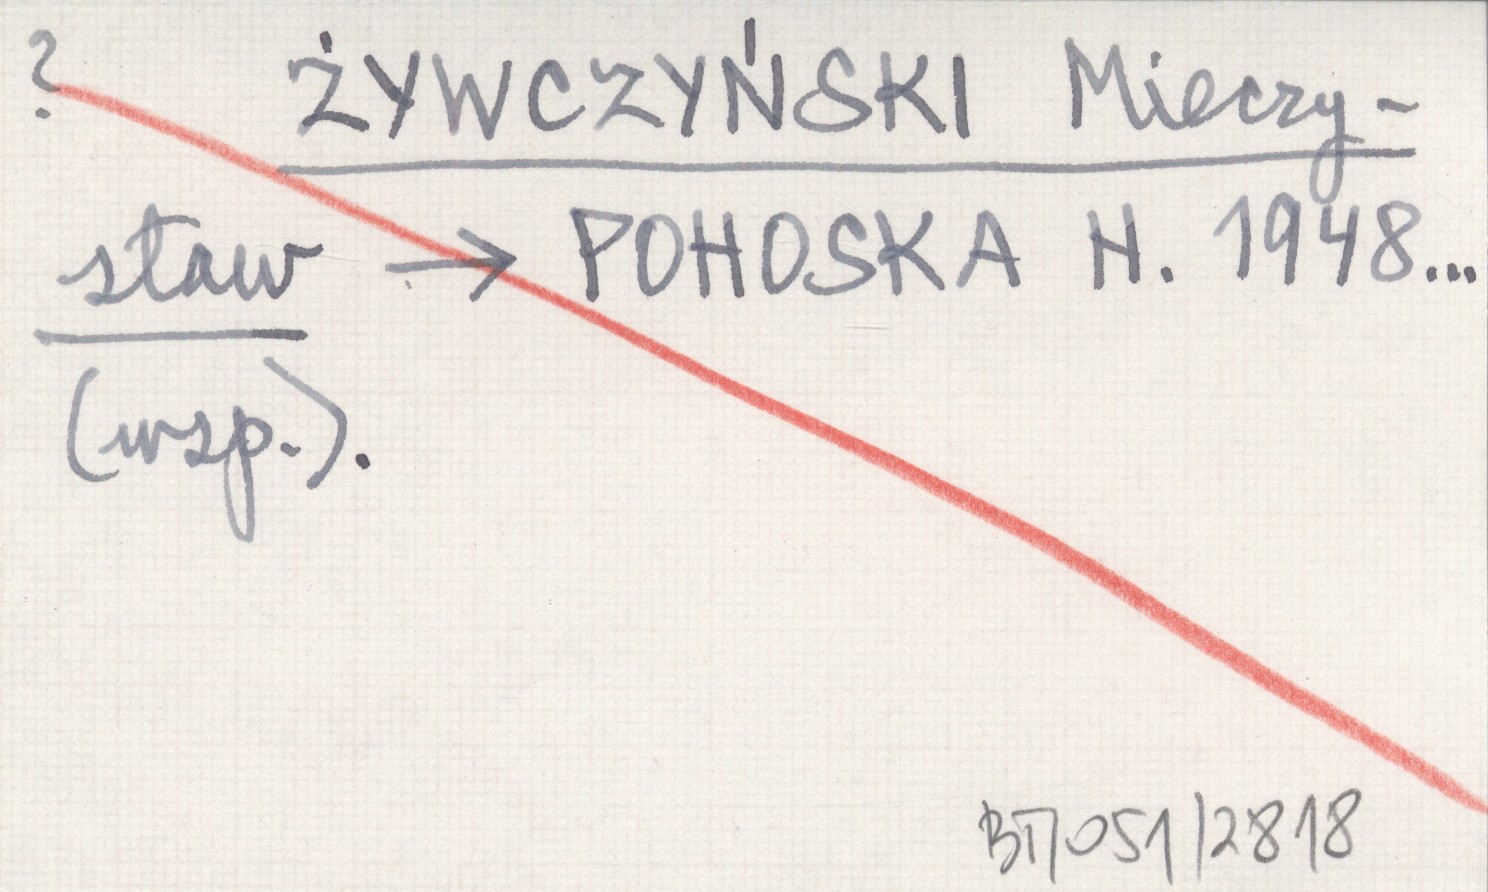 ? ŻYWCZYŃSKI Mieczy-
sław → POHOSKA H. 1948...
(wsp.).
BTI/051/2818